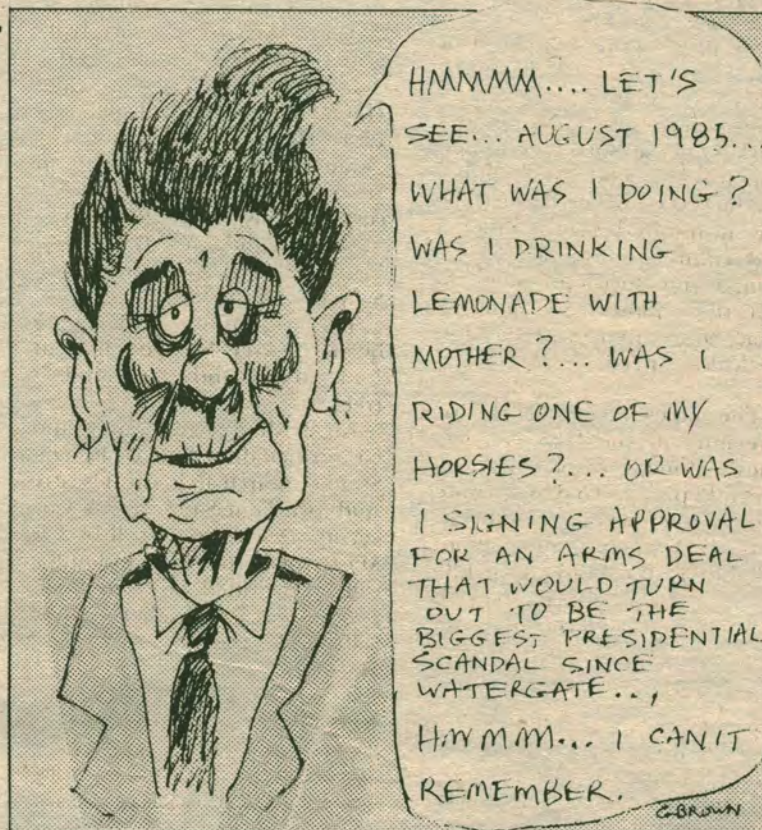 HMMMM.... LET'S
SEE... AUGUST 1985...
WHAT WAS I DOING?
WAS I DRINKING
LEMONADE WITH
MOTHER?... WAS I
RIDING ONE OF MY
HORSIES?... OR WAS
I SIGNING APPROVAL
FOR AN ARMS DEAL
THAT WOULD TURN
OUT TO BE THE
BIGGEST PRESIDENTIAL
SCANDAL SINCE
WATERGATE...
HMMMM... I CAN'T
REMEMBER.
C.BROWN